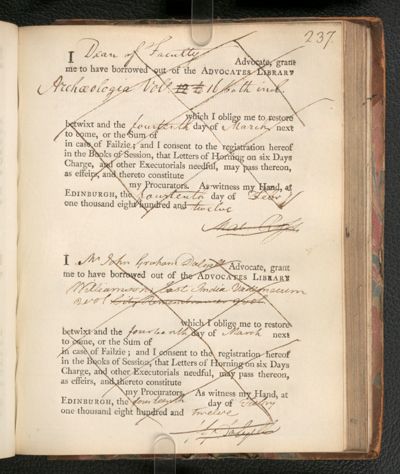 237.
I Dean of Faculty Advocate, grant
me to have borrowed out of the ADVOCATES LIBRARY
Archæologia Vol 16 both incl.
which I oblige me to restore
betwixt and the fourteenth day of March next
to come, or the Sum of
in case of Failzie; and I consent to the registration hereof
in the Books of Session, that Letters of Horning on six Days
Charge, and other Executorials needful, may pass thereon,
as effeirs, and thereto constitute
my Procurators. As witness my Hand, at
EDINBURGH, the fourteenth day of
one thousand eight hundred and twelve
I Mr John Graham Dalyell Advocate, grant
me to have borrowed out of the ADVOCATES LIBRARY
Williamsons East India Vademecum
2 vol
which I oblige me to restore
betwixt and the fourteenth day of March next
to come, or the Sum of
in case of Failzie; and I consent to the registration hereof
in the Books of Session, that Letters of Horning on six Days
Charge, and other Executorials needful, may pass thereon,
as effeirs, and thereto constitute
my Procurators. As witness my Hand, at
EDINBURGH, the fourteenth day of
one thousand eight hundred and twelve